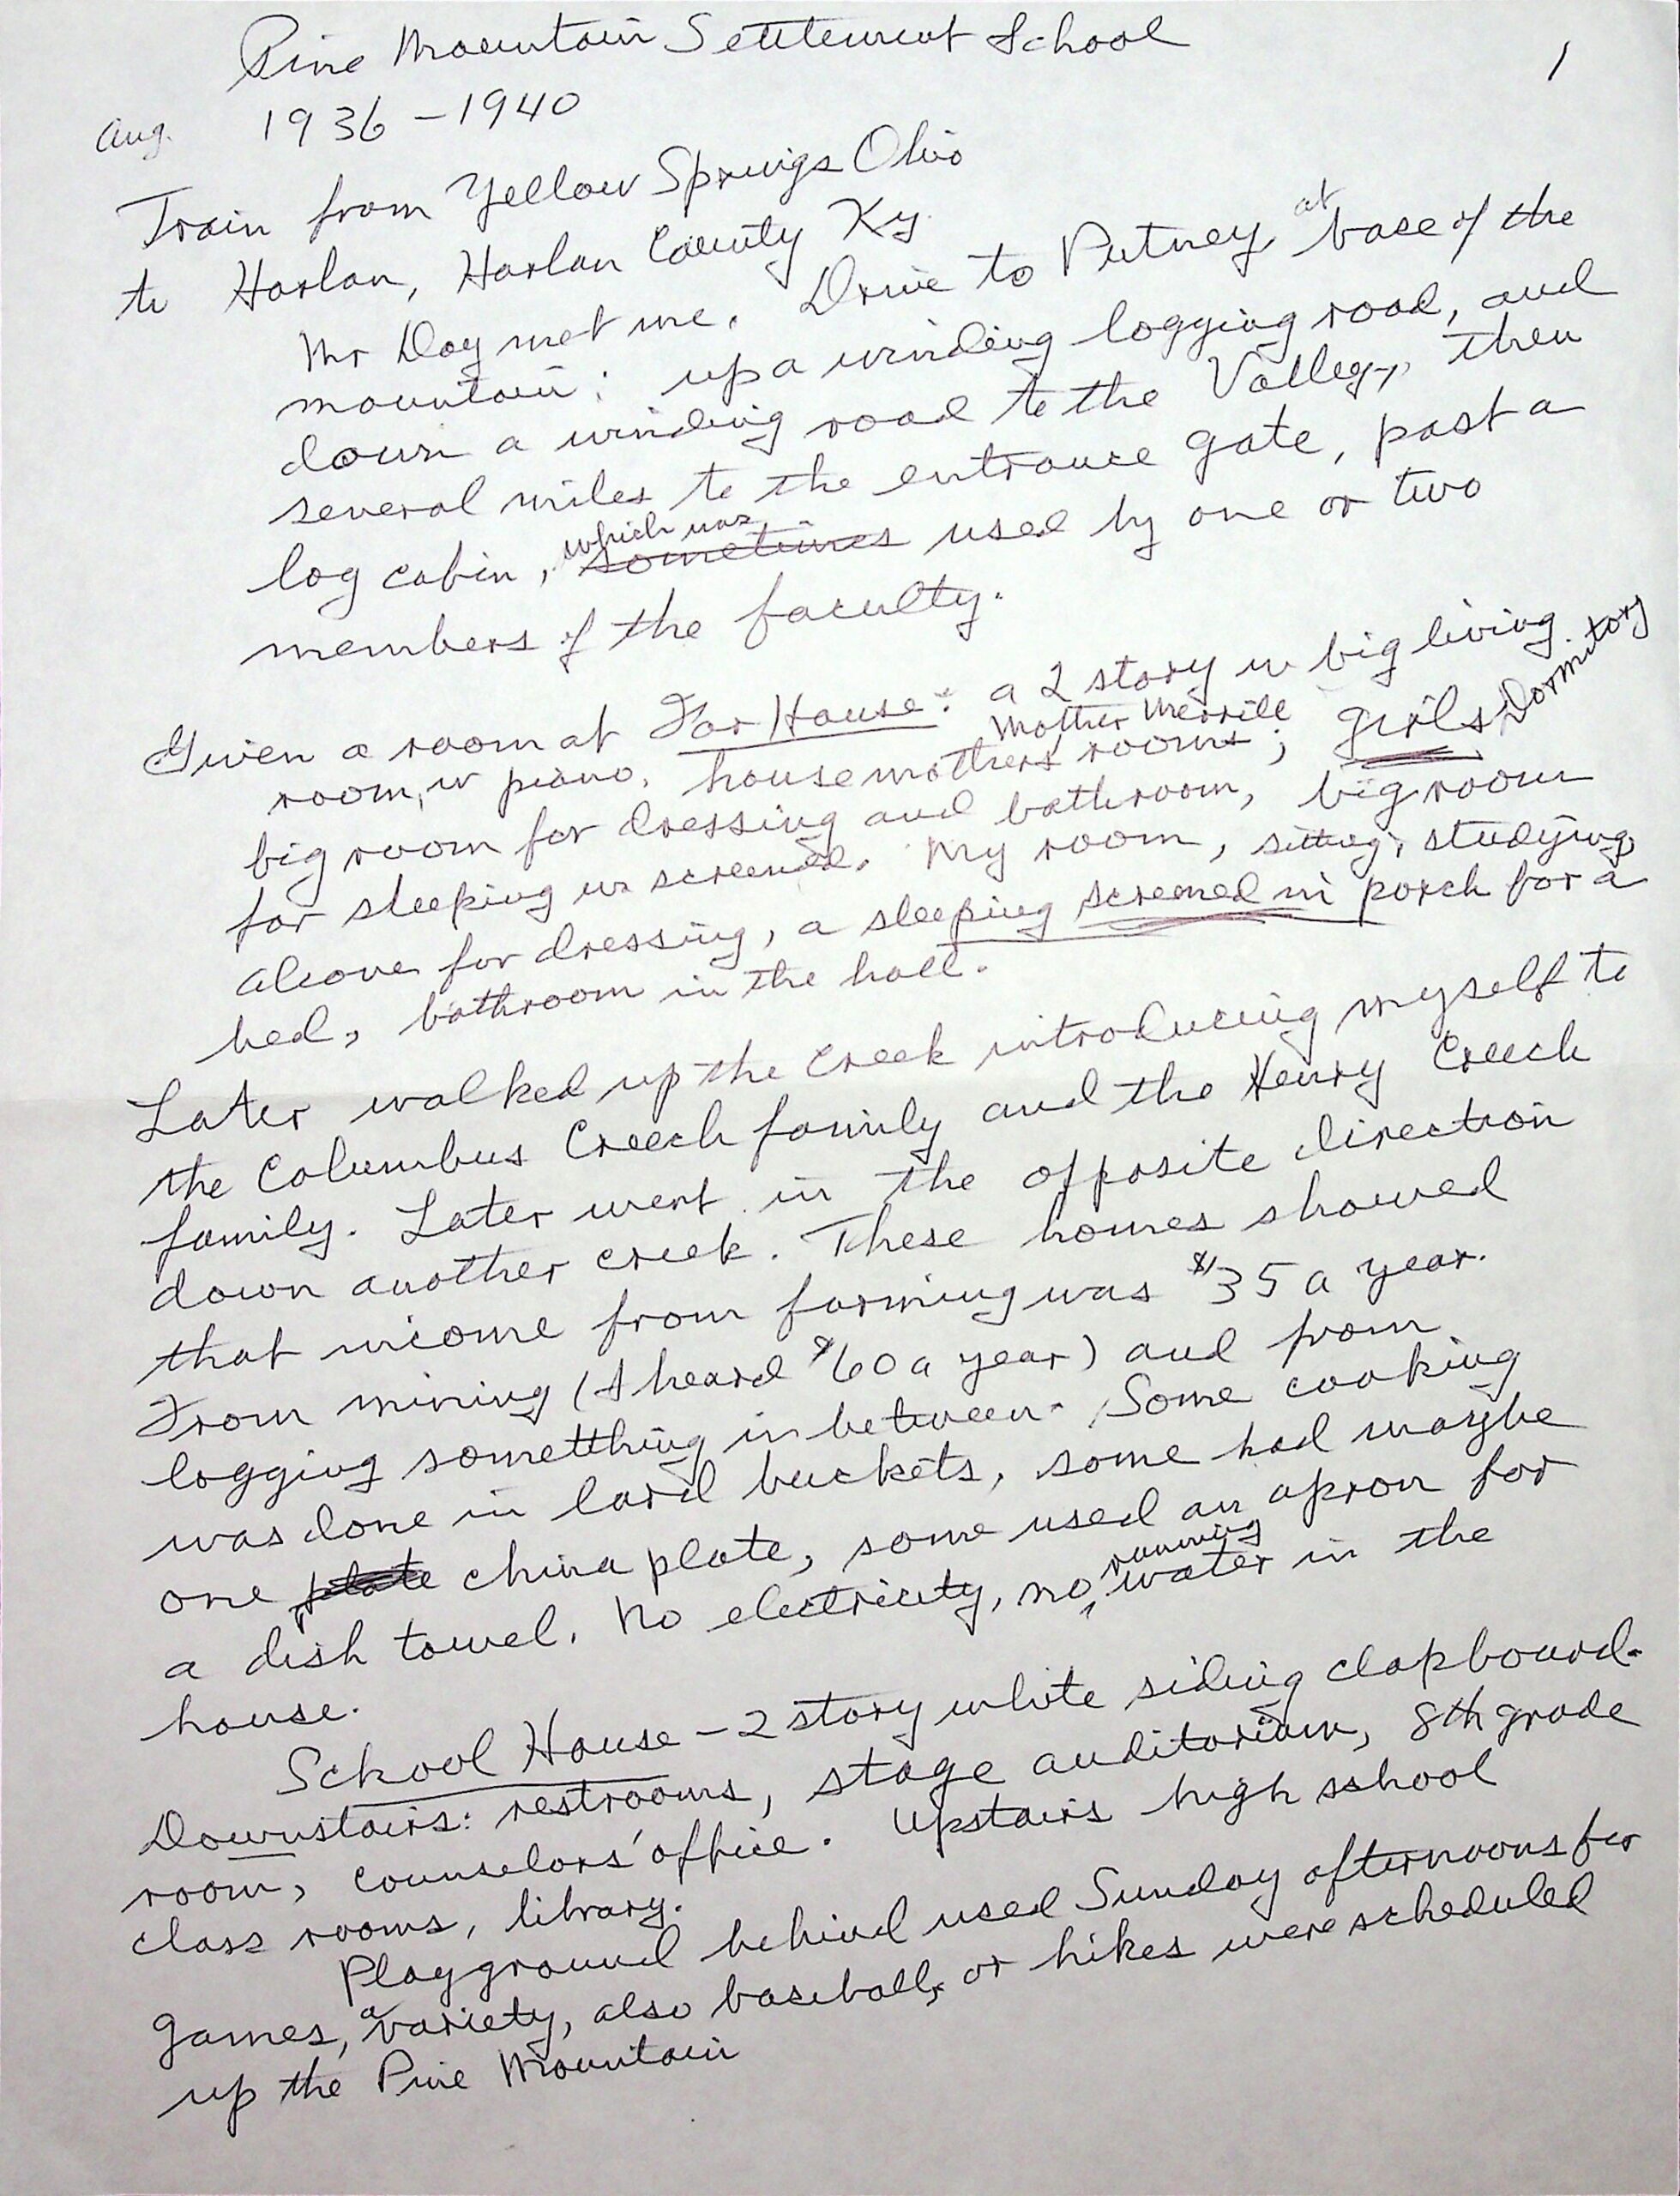 Pine Mountain Settlement School
1
Aug. 1936 - 1940
Train from Yellow Springs Ohio
to Harlan, Harlan County Ky.
Mr Day met me. Drive to Putney at base of the
mountain; up a winding logging road, and
down a winding road to the Valley, then
several miles to the entrance gate, past a
log cabin, which was sometimes used by one or two
members of the faculty.
Given a room at Far House: a 2 story w big living
room, w piano, housemothers Mother Merrill rooms; girls Dormitory
big room for dressing and bathroom, big room
for sleeping w screened. My room, sitting, studying,
alcove for dressing, a sleeping screened in porch for a
bed, bathroom in the hall.
Later walked up the creek introducing myself to
the Columbus Creech family and the Henry Creech
family. Later went in the opposite direction
down another creek. These homes showed
that income from farming was $35 a year.
From mining (I heard $60 a year) and from
logging sometthing in between. Some cooking
was done in lard buckets, some had maybe
one plate china plate, some used an apron for
a dish towel. No electricity, no running water in the
house.
School House - 2 story white siding clapboard.
Downstairs: restrooms, stage auditorium, 8th grade
room, counselors' office. Upstairs high school
class rooms, library.
Playground behind used Sunday afternoons for
games, a variety, also baseball, or hikes were scheduled
up the Pine Mountain